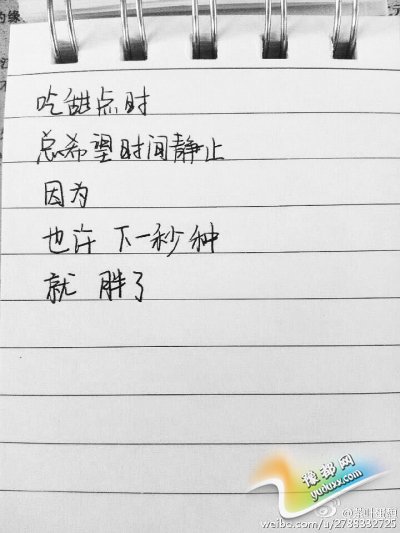 吃甜点时
总希望时间静止
因为
也许 下一秒种
就 胖了
豫都网
yuduxx.com
weibo.com/u/2738332725